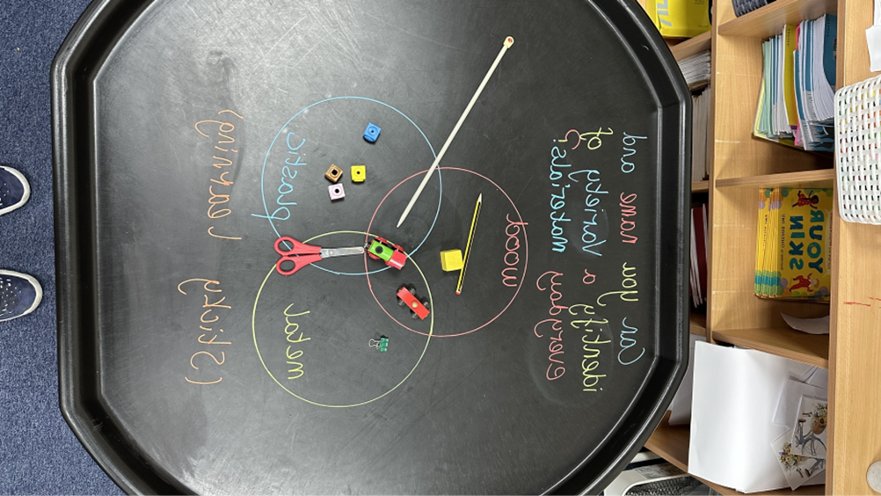 Can you name and
identify a variety of
everyday materials?
wood
plastic
metal
(Sticky Learning)
YOUR
SKIN